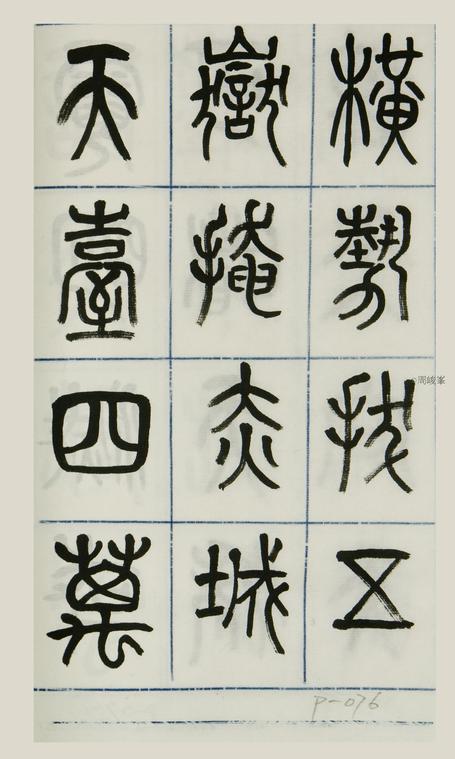 橫勢拔五
嶽掩赤城
天臺四萬
周峻峯
P-076